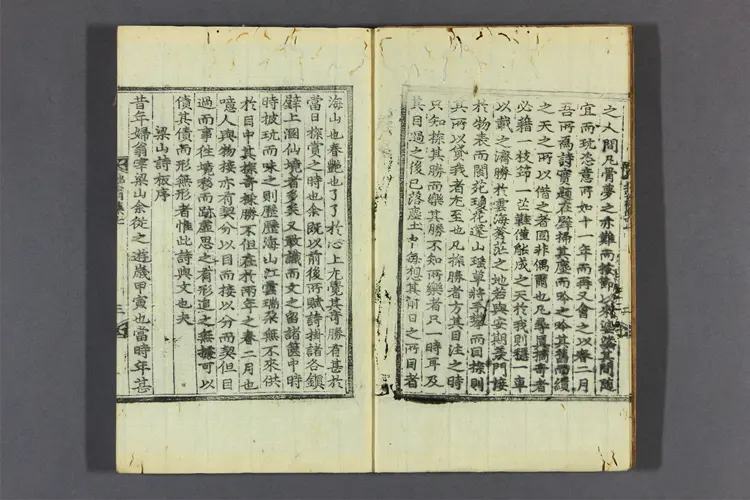 之人間凡骨夢之亦難而按節以來婆娑其間隨
宜而玩恣意所如十一年而再又會之以春二月
吾所爲詩實題在壁掃其塵而吟之吟其舊而續
之天之所以借之者固非偶爾也凡尋眞摘奇者
必藉一枝筇一芒鞋僅能成之天於我則騁一車
以載之濟勝於雲海蒼茫之地若與安期羨門接
於物表而閬苑瓊花蓬山瑤草將手攀而目採則
其所以貸我者尤至也凡採勝者方其目注之時
只知採其勝而樂其勝不知所樂者只一時耳及
其目過之後已落塵土中每想其前日之所目者
海山也眷艶也了了於心上尤覺其奇勝有甚於
當日採賞之時也余旣以前後所賦詩掛諸各鎭
壁上溷仙境者多矣又敢識而文之留諸篋中時
時披玩而味之則歷歷海山江雲瑞朶無不來供
於目中其採奇採勝不但在於兩年之春二月也
噫人與物接亦有契分以目而接以分而契但目
過而事往境移而跡虛思之有形追之無據可以
債其債而形無形者惟此詩與文也夫
梁山詩板序
昔年婦翁宰梁山余從之遊歲甲寅也當時年甚